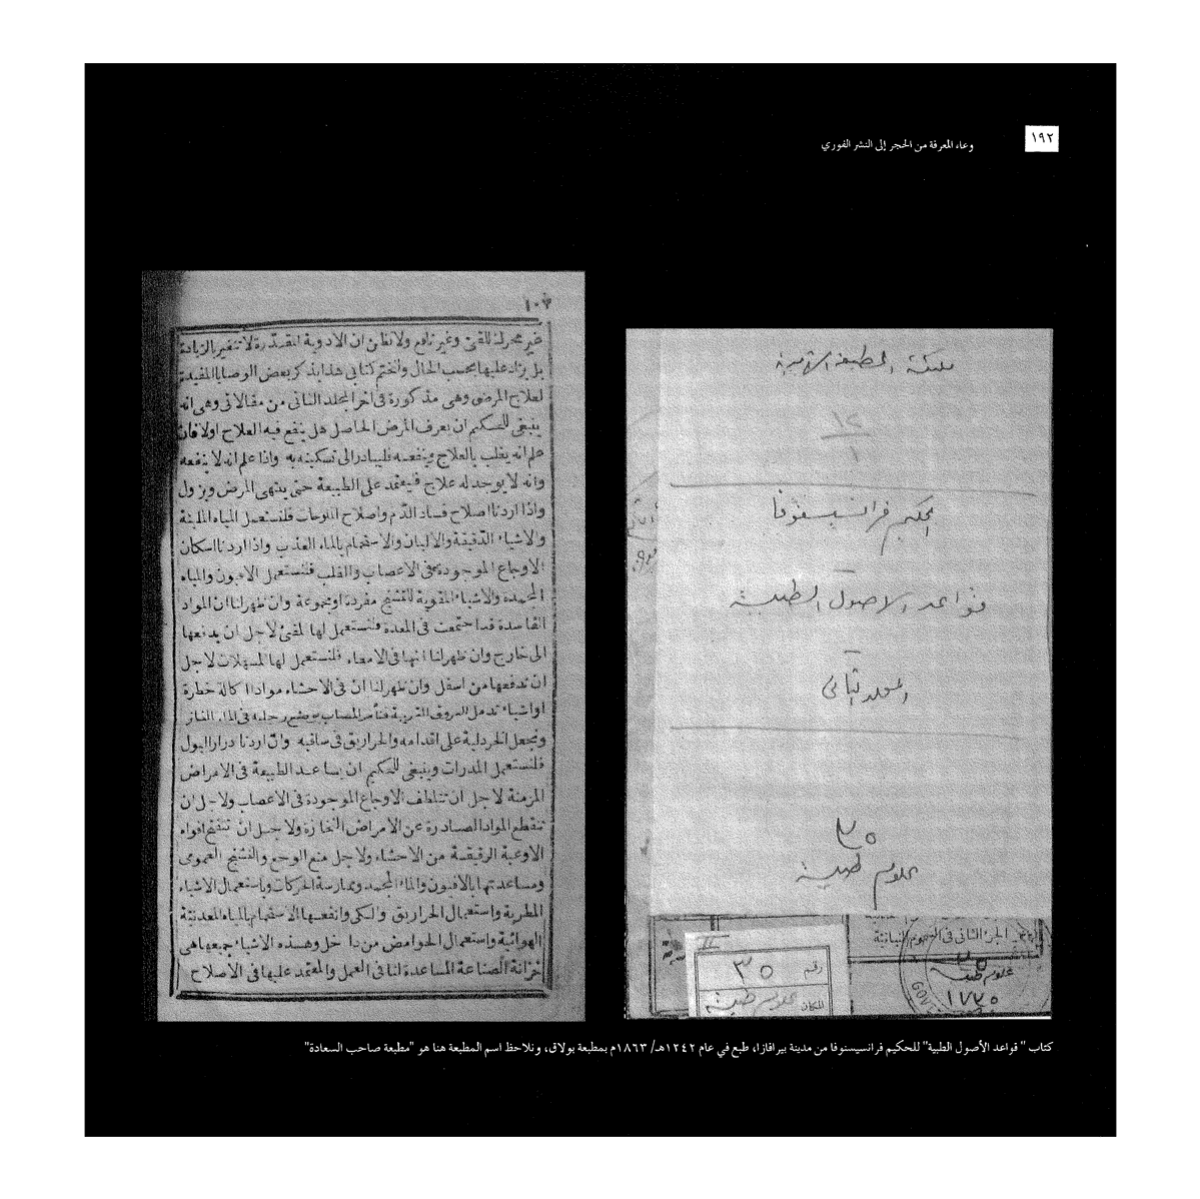 ١٩٢
وعاء المعرفة من الحجر إلى النشر الفوري
مكتبة المطبعة الاميرية
١٢
١
الحكيم فرانسيسنوفا
قواعد الاصول الطبية
المجلد الثانى
٣٥
علوم طبية
الجزء الثانى فى
٣٥
علوم طبية
١٧٧٥
GOV
II
رقم ٣٥
المكان علوم طبية
١٠٣
غير محركة للقئ وغير نافع ولا نظن ان الادوية المقدرة لا تتغير بالزيادة
بل يزاد عليها بحسب الحال ولنختم كتابى هذا بذكر بعض الوصايا المفيدة
لعلاج المرض وهى مذكورة فى اخر المجلد الثانى من مقالاتى وهى انه
ينبغى للحكيم ان يعرف المرض الحاصل هل ينفع فيه العلاج اولا فان
علم انه يغلب بالعلاج وينفعه فليبادر الى تسكينه به واذا علم انه لا ينفعه
وانه لا يوجد له علاج فيعتمد على الطبيعة حتى ينتهى المرض ويزول
واذا اردنا اصلاح فساد الدم واصلاح فلنستعمل المياه الملينة
والاشياء الدقيقة والالبان والاستحمام بالماء العذب واذا اردنا اسكان
الاوجاع الموجودة فى الاعصاب والقلب فلنستعمل الافيون والمياه
المجمدة والاشياء المقوية للتشنج مفردة او مجموعة وان ظهر لنا ان المواد
الفاسدة قد اجتمعت فى المعدة فلنستعمل لها المقئ لاجل ان يدفعها
الى خارج وان ظهر لنا انها فى الامعاء فلنستعمل لها المسهلات لاجل
ان تدفعها من اسفل وان ظهر لنا ان فى الاحشاء مواد اكالة خطرة
او اشياء تدمل العروق القريبة فنأمر المصاب بوضع رجليه فى الماء الفاتر
ونجعل الخردلية على اقدامه والحراريق فى ساقيه وان اردنا درار البول
فلنستعمل المدرات وينبغى للحكيم ان يساعد الطبيعة فى الامراض
المزمنة لاجل ان تتلطف الاوجاع الموجودة فى الاعصاب ولاجل ان
تنقطع المواد الصادرة عن الامراض ولاجل ان تنفتح افواه
الاوعية الرقيقة من الاحشاء ولاجل منع الوجع والتشنج العمومى
ومساعدتها بالافيون والماء المجمد وممارسة الحركات وباستعمال الاشياء
المطرية واستعمال الحراريق والكى وانفعها الاستحمام بالمياه المعدنية
الهوائية واستعمال الحوامض من داخل وهذه الاشياء جميعها هى
خزانة الصناعة المساعدة لنا فى العمل والمعتمد عليها فى الاصلاح
كتاب " قواعد الأصول الطبية" للحكيم فرانسيسنوفا من مدينة بيرافازا، طبع في عام ١٢٤٢هـ/ ١٨٦٣م بمطبعة بولاق، ونلاحظ اسم المطبعة هنا هو "مطبعة صاحب السعادة"